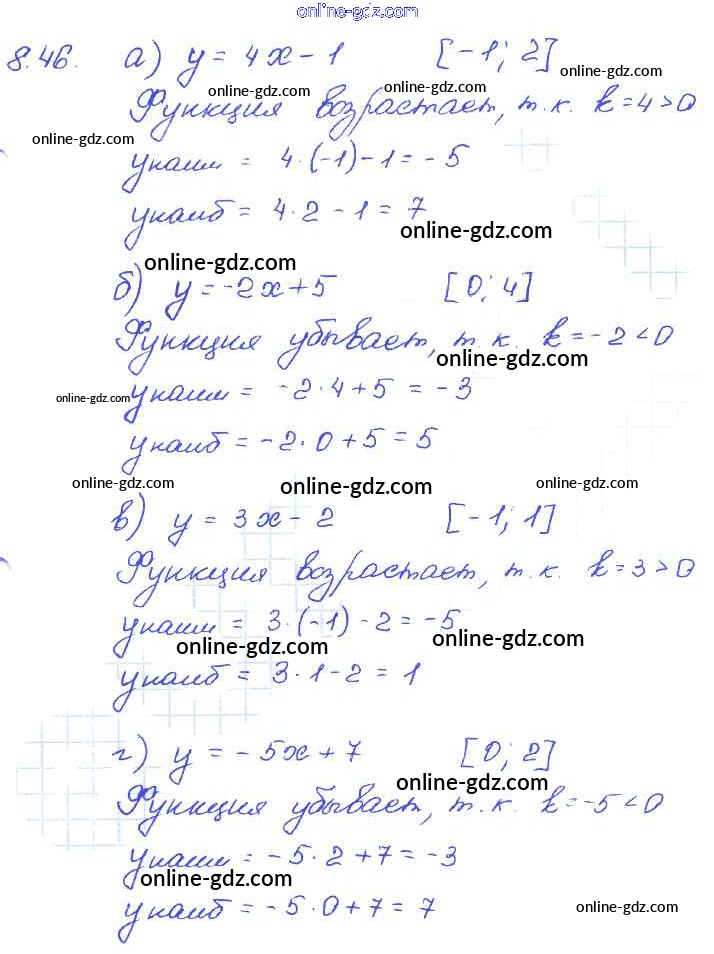 online-gdz.com
8.46. а) y = 4x - 1 [-1; 2]
online-gdz.com
online-gdz.com online-gdz.com
Функция возрастает, т.к. k = 4 > 0
online-gdz.com
yнаим = 4·(-1) - 1 = -5
yнаиб = 4·2 - 1 = 7
online-gdz.com
online-gdz.com
б) y = -2x + 5 [0; 4]
Функция убывает, т.к. k = -2 < 0
online-gdz.com
online-gdz.com yнаим = -2·4 + 5 = -3
yнаиб = -2·0 + 5 = 5
online-gdz.com online-gdz.com online-gdz.com
в) y = 3x - 2 [-1; 1]
Функция возрастает, т.к. k = 3 > 0
yнаим = 3·(-1) - 2 = -5
online-gdz.com online-gdz.com
yнаиб = 3·1 - 2 = 1
г) y = -5x + 7 [0; 2]
online-gdz.com
Функция убывает, т.к. k = -5 < 0
yнаим = -5·2 + 7 = -3
online-gdz.com
yнаиб = -5·0 + 7 = 7
online-gdz.com